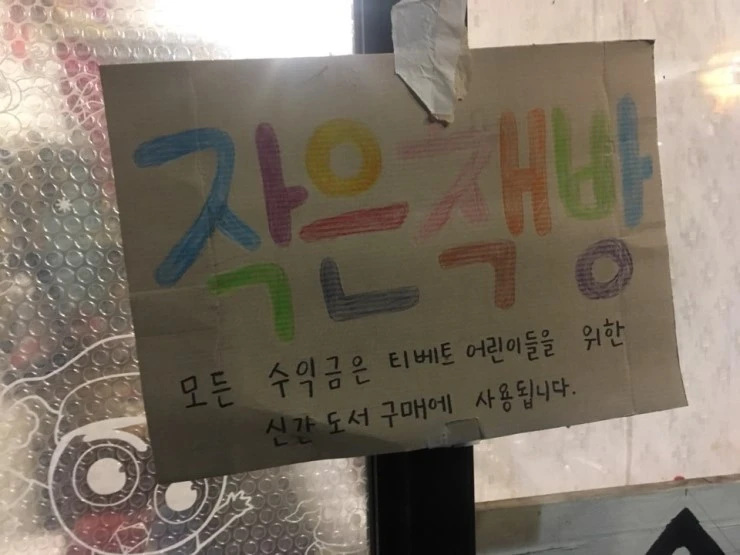 작은책방
모든 수익금은 티베트 어린이들을 위한
신간 도서 구매에 사용됩니다.